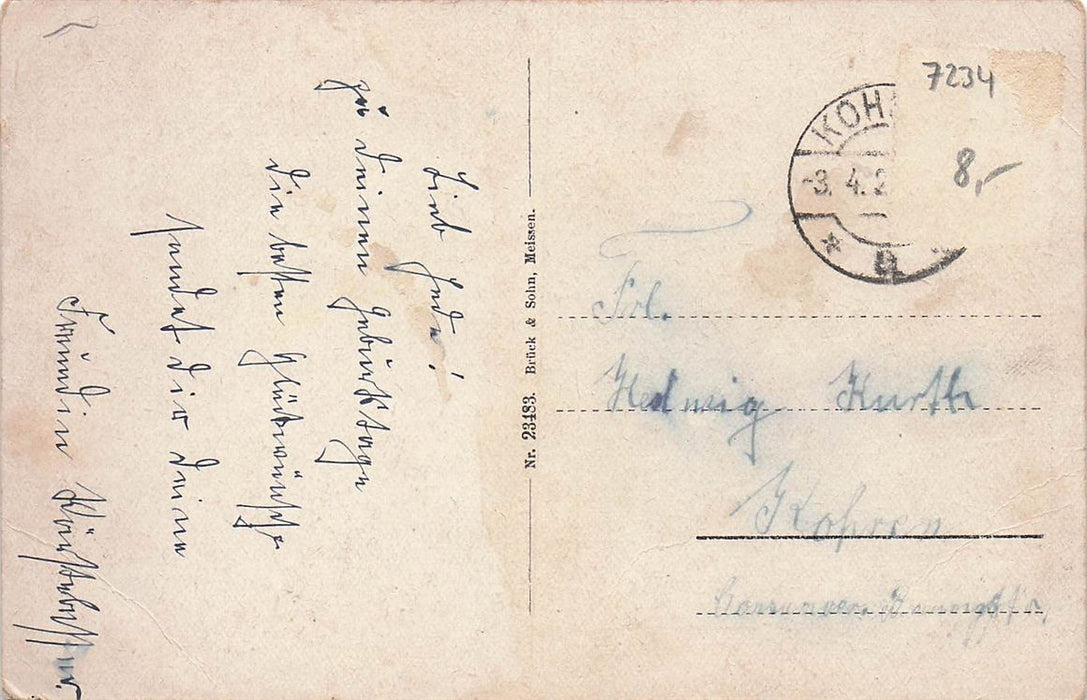 Lieb Hede!
zu deinem Geburtstage
die besten Glückwünsche
sendet dir deine
Freundin
Nr. 23483. Brück & Sohn, Meissen.
7234
8,-
KOH
-3. 4. 2
Frl.
Hedwig Kurth
Kohren